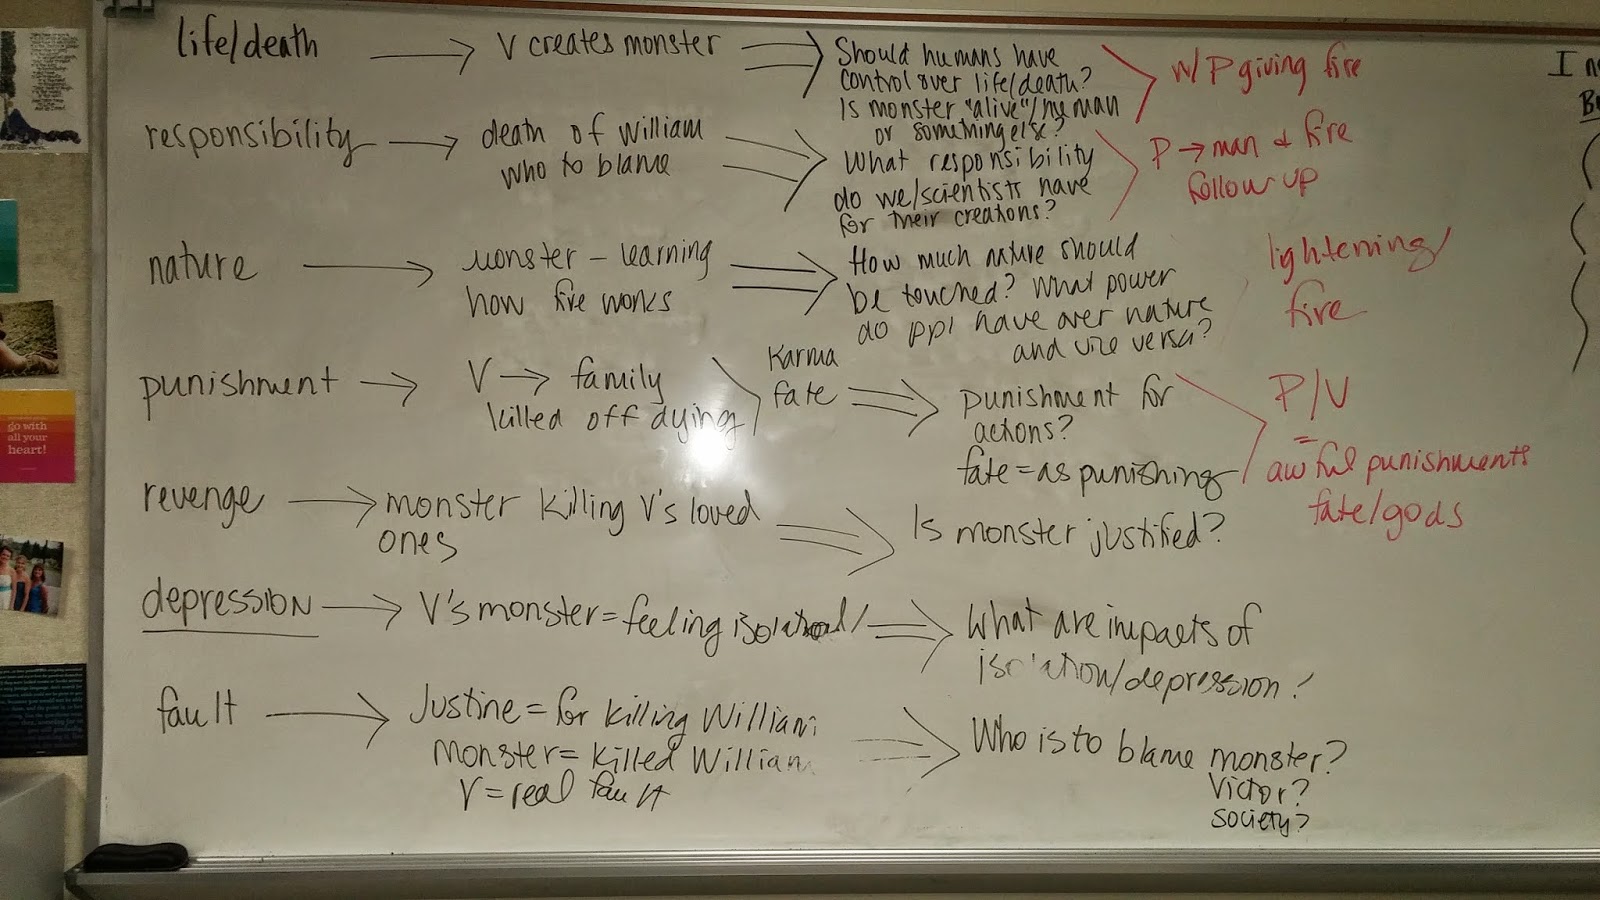 life/death → V creates monster ⇒ Should humans have
control over life/death?
Is monster "alive"/human
or something else?
w/ P giving fire
responsibility → death of William
who to blame
What responsibility
do we/scientists have
for their creations?
P → man & fire
follow up
nature → monster - learning
how fire works
How much nature should
be touched? What power
do ppl have over nature
and vice versa?
lightening/
fire
punishment → V → family
killed off dying
Karma
fate ⇒ punishment for
actions?
fate = as punishing
P/V
=
awful punishments
fate/gods
revenge → monster killing V's loved
ones
Is monster justified?
depression → V's monster = feeling isolated/ ⇒ What are impacts of
isolation/depression?
fault → Justine = for killing William
monster = killed William
V = real fault
Who is to blame monster?
Victor?
society?
I
go with
all your
heart!